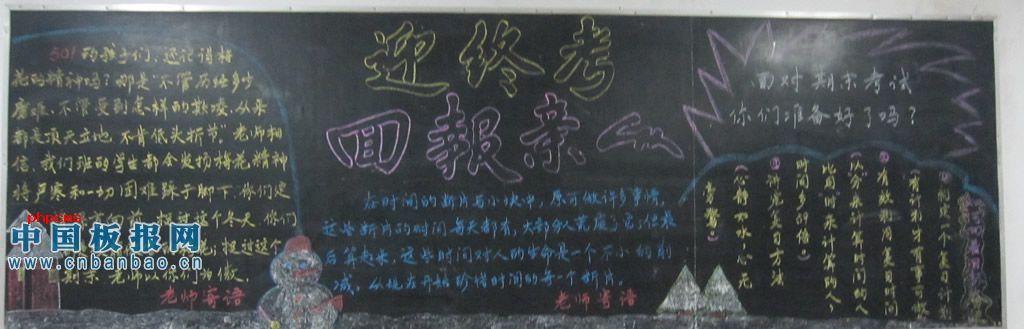 迎终考
回報亲人
501的孩子们，还记得梅
花的精神吗？那是"不管历经多少
磨难，不管受到怎样的欺凌，从来
都是顶天立地，不肯低头折节。"老师相
信，我们班的学生都会发扬梅花精神
将严寒和一切困难踩于脚下，你们定
挺过这个冬天，你们
挺过这个
期末，老师以你们为傲。
老师寄语
在时间的断片与小块中，原可做许多事情，
这些断片的时间每天都有，大部分人荒废了它，但最
后算起来，这些时间对人的生命是一个不小的削
减，从现在开始珍惜时间的每一个断片。
老师寄语
面对期末考试
你们准备好了吗？
①制定一个复习计划
（有计划才有
②有效利用复习时间
（以分来计算时间的人
比用"时"来计算的人，
时间多59倍）
③讲究复习方法
（心静如水，心无
旁骛）
phpcms
中国板报网
www.cnbanbao.cn